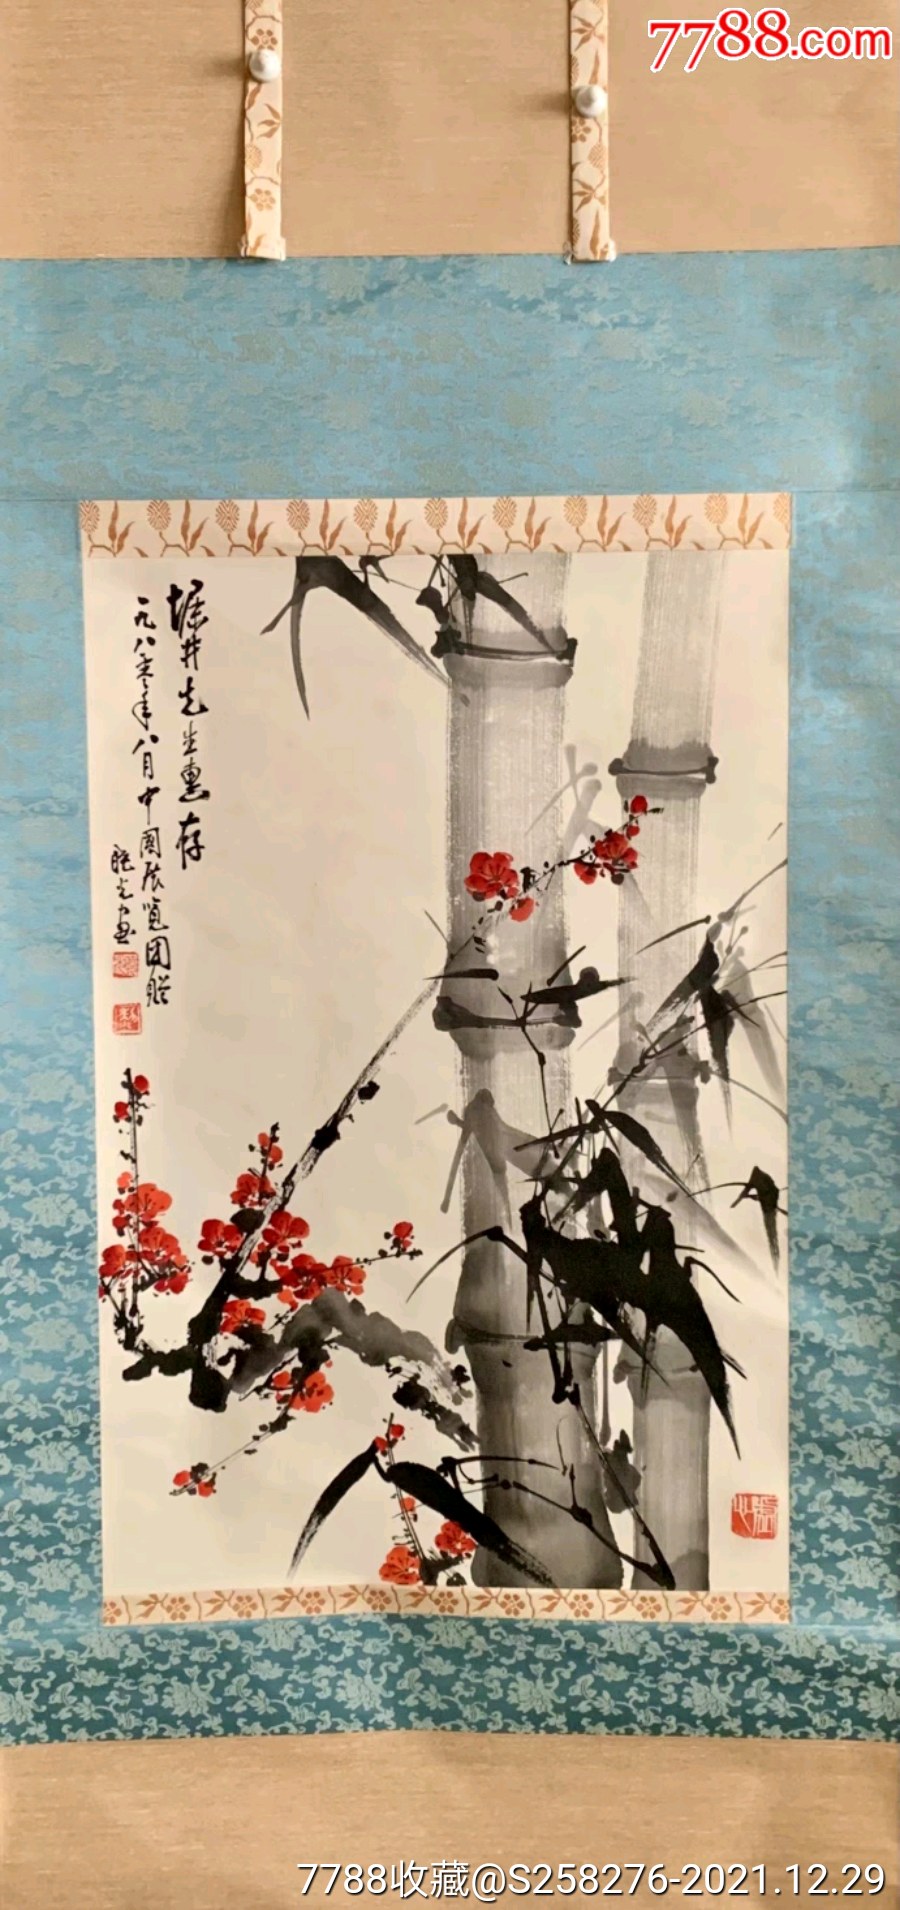 7788.com
堀井先生惠存
一九八零年八月中國展览团贈
晓光画
虚心
7788收藏@S258276-2021.12.29